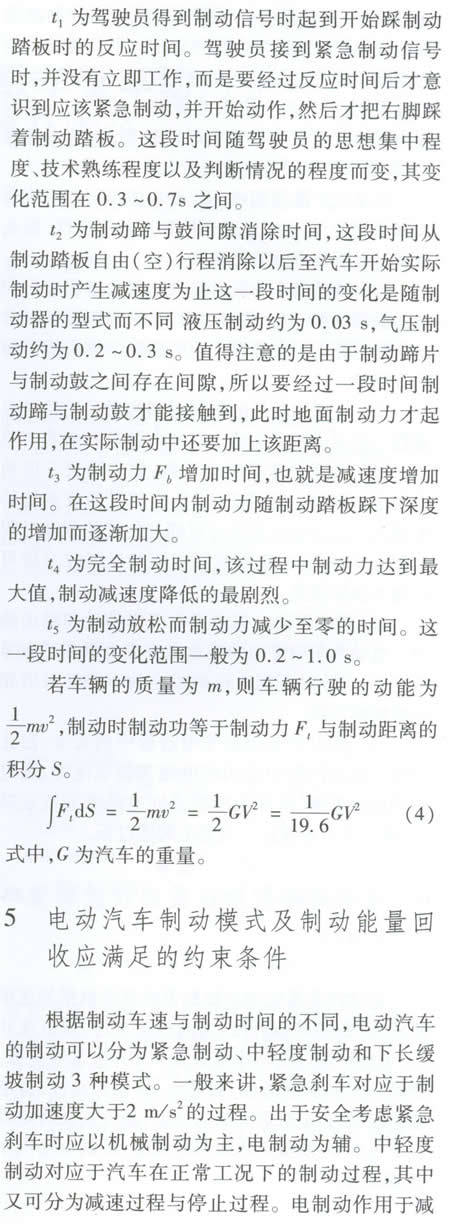 t₁ 为驾驶员得到制动信号时起到开始踩制动
踏板时的反应时间。驾驶员接到紧急制动信号
时,并没有立即工作,而是要经过反应时间后才意
识到应该紧急制动,并开始动作,然后才把右脚踩
着制动踏板。这段时间随驾驶员的思想集中程
度、技术熟练程度以及判断情况的程度而变,其变
化范围在 0.3 ~ 0.7s 之间。
t₂ 为制动蹄与鼓间隙消除时间,这段时间从
制动踏板自由(空)行程消除以后至汽车开始实际
制动时产生减速度为止这一段时间的变化是随制
动器的型式而不同 液压制动约为 0.03 s,气压制
动约为 0.2 ~ 0.3 s。值得注意的是由于制动蹄片
与制动鼓之间存在间隙,所以要经过一段时间制
动蹄与制动鼓才能接触到,此时地面制动力才起
作用,在实际制动中还要加上该距离。
t₃ 为制动力 F_b 增加时间,也就是减速度增加
时间。在这段时间内制动力随制动踏板踩下深度
的增加而逐渐加大。
t₄ 为完全制动时间,该过程中制动力达到最
大值,制动减速度降低的最剧烈。
t₅ 为制动放松而制动力减少至零的时间。这
一段时间的变化范围一般为 0.2 ~ 1.0 s。
若车辆的质量为 m,则车辆行驶的动能为
1/2 mv²,制动时制动功等于制动力 F_t 与制动距离的
积分 S。
∫F_t dS = 1/2 mv² = 1/2 GV² = 1/19.6 GV² (4)
式中,G 为汽车的重量。
5 电动汽车制动模式及制动能量回
收应满足的约束条件
根据制动车速与制动时间的不同,电动汽车
的制动可以分为紧急制动、中轻度制动和下长缓
坡制动 3 种模式。一般来讲,紧急刹车对应于制
动加速度大于2 m/s²的过程。出于安全考虑紧急
刹车时应以机械制动为主,电制动为辅。中轻度
制动对应于汽车在正常工况下的制动过程,其中
又可分为减速过程与停止过程。电制动作用于减